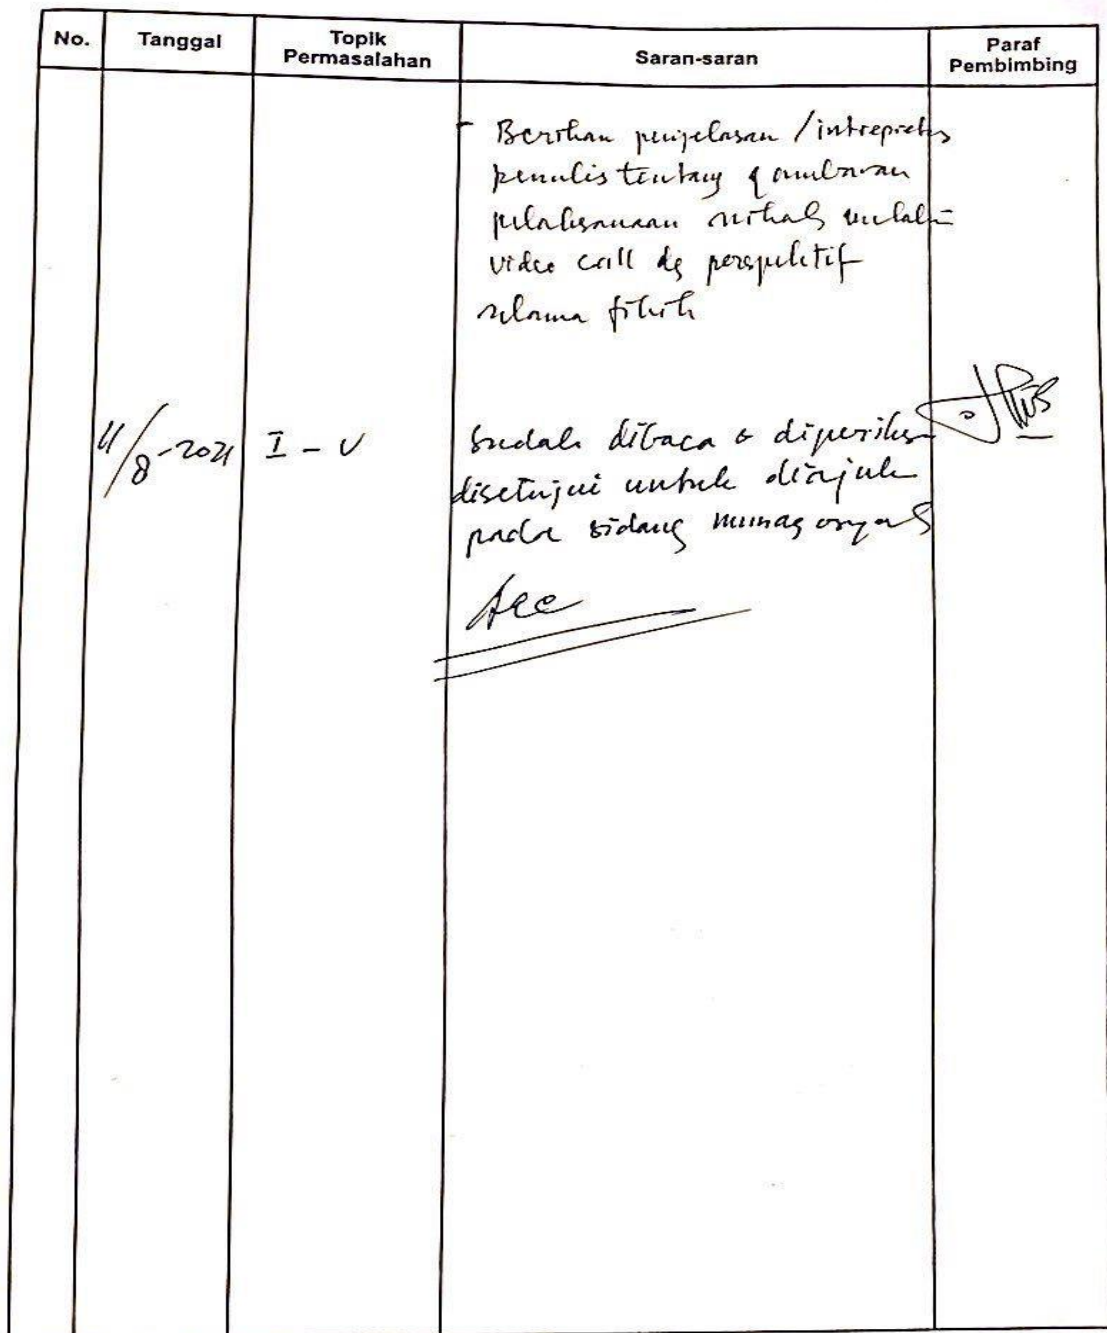 No. Tanggal Topik Permasalahan Saran-saran Paraf Pembimbing
- Berikan penjelasan / intrepretas
penulis tentang gambaran
pelaksanaan nikah melalui
video call dg perspektif
ulama fikih
11/8-2021 I - V Sudah dibaca & diperiksa
disetujui untuk diajuk
pada sidang munaqosyah
Acc